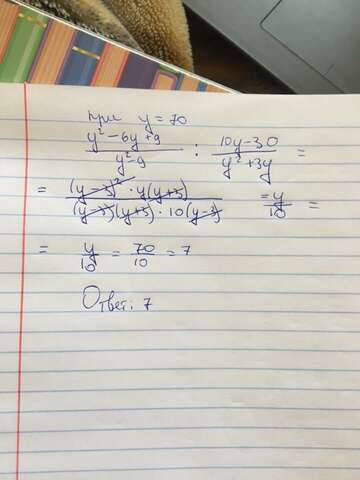 при y = 70
(y² - 6y + 9)/(y² - 9) : (10y - 30)/(y² + 3y) =
= ((y - 3)² · y(y + 3))/((y - 3)(y + 3) · 10(y - 3)) = y/10 =
= y/10 = 70/10 = 7
Ответ: 7